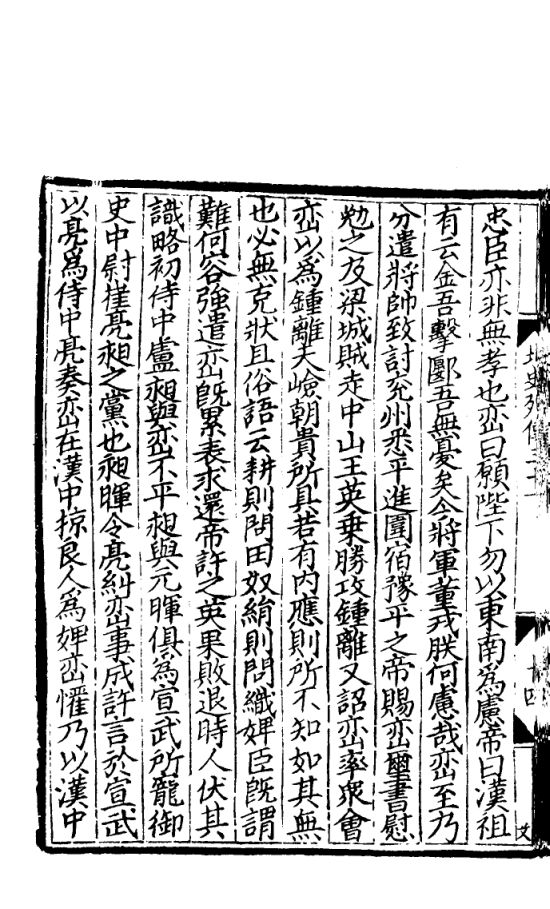 北史列傳三十一
十四
文
忠臣亦非無孝也巒曰願陛下勿以東南為慮帝曰漢祖
有云金吾擊郾吾無憂矣今將軍董戎朕何慮哉巒至乃
分遣將帥致討兗州悉平進圍宿豫平之帝賜巒璽書慰
勉之及梁城賊走中山王英乗勝攻鍾離又詔巒率衆會
巒以為鍾離天嶮朝貴所具若有內應則所不知如其無
也必無克狀且俗語云耕則問田奴絹則問織婢臣旣謂
難何容強遣巒旣累表求還帝許之英果敗退時人伏其
識略初侍中盧昶與巒不平昶與元暉俱為宣武所寵御
史中尉崔亮昶之黨也昶暉令亮糾巒事成許言於宣武
以亮爲侍中亮奏巒在漢中掠良人爲婢巒懼乃以漢中